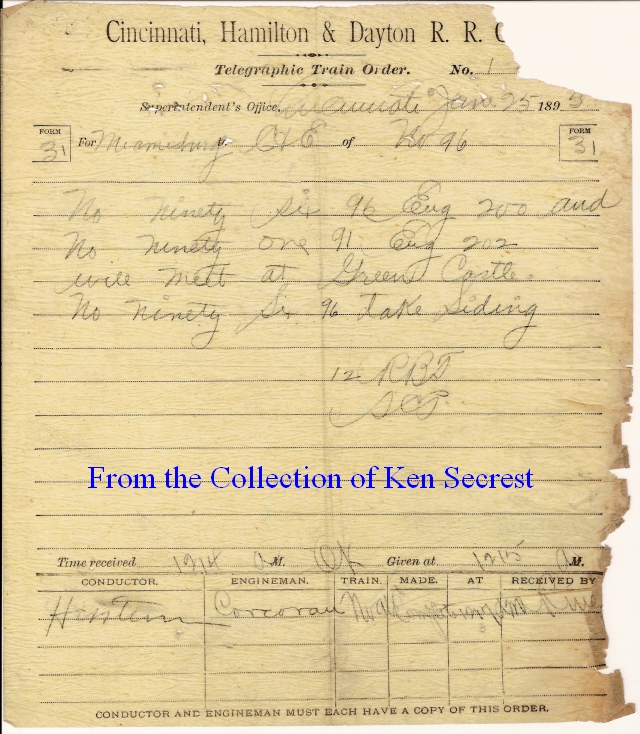 Cincinnati, Hamilton & Dayton R. R. C
Telegraphic Train Order. No. 1
Superintendent's Office, Cincinnati June 25 1893
FORM 31 For Miamisburg C&E of No 96 FORM 31
No ninety six 96 Eng 200 and
No ninety one 91 Eng 202
will meet at Green Castle.
No ninety Six 96 take Siding
12 RBT
SCP
From the Collection of Ken Secrest
Time received 1214 A M. OK Given at 1215 A M.
CONDUCTOR. ENGINEMAN. TRAIN. MADE. AT RECEIVED BY
Corcoran No 96
CONDUCTOR AND ENGINEMAN MUST EACH HAVE A COPY OF THIS ORDER.